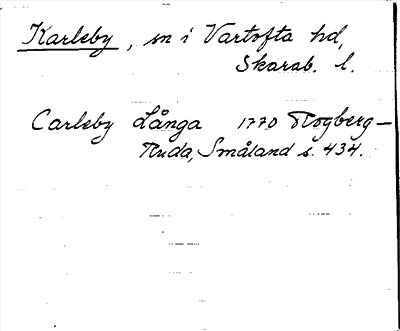 Karleby, sn i Vartofta hd,
Skarab. l.
Carleby Långa 1770 Rogberg—
Ruda, Småland s. 434.